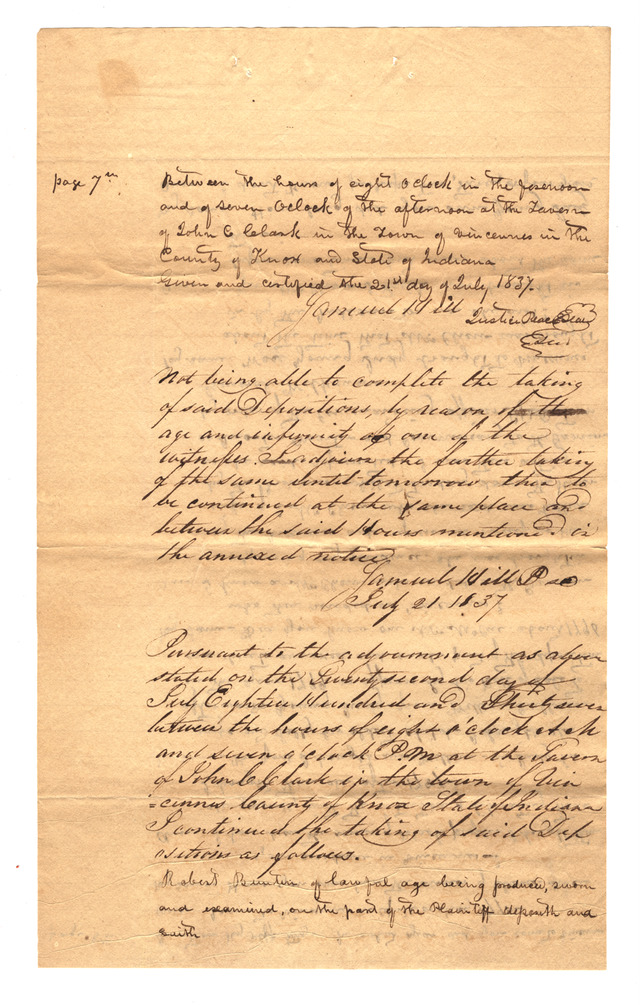 page 7th
Between the hours of eight Oclock in the forenoon
and of seven Oclock of the afternoon at the Tavern
of John C Clark in the Town of Vincennes in the
County of Knox and State of Indiana
Given and certified the 21st day of July 1837.
Samuel Hill
Justice Peace Seal
Not being able to complete the taking
of said Depositions, by reason of the
age and infirmity of one of the
witness I adjourn the further taking
of the same until tomorrow then to
be continued at the same place and
between the said Hours mentioned in
the annexed notice
Samuel Hill
July 21. 1837
Pursuant to the adjournment as above
stated on the Twentysecond day of
July Eighteen Hundred and Thirty seven
between the hours of eight o'clock A M
and seven o'clock P.M at the Tavern
of John C Clark in the town of Vin
=cennes County of Knox State of Indiana
I continued the taking of said Dep
ositions as follows.
Robert of lawful age being produced, sworn
and examined, on the part of the Plaintiff deposith and
saith